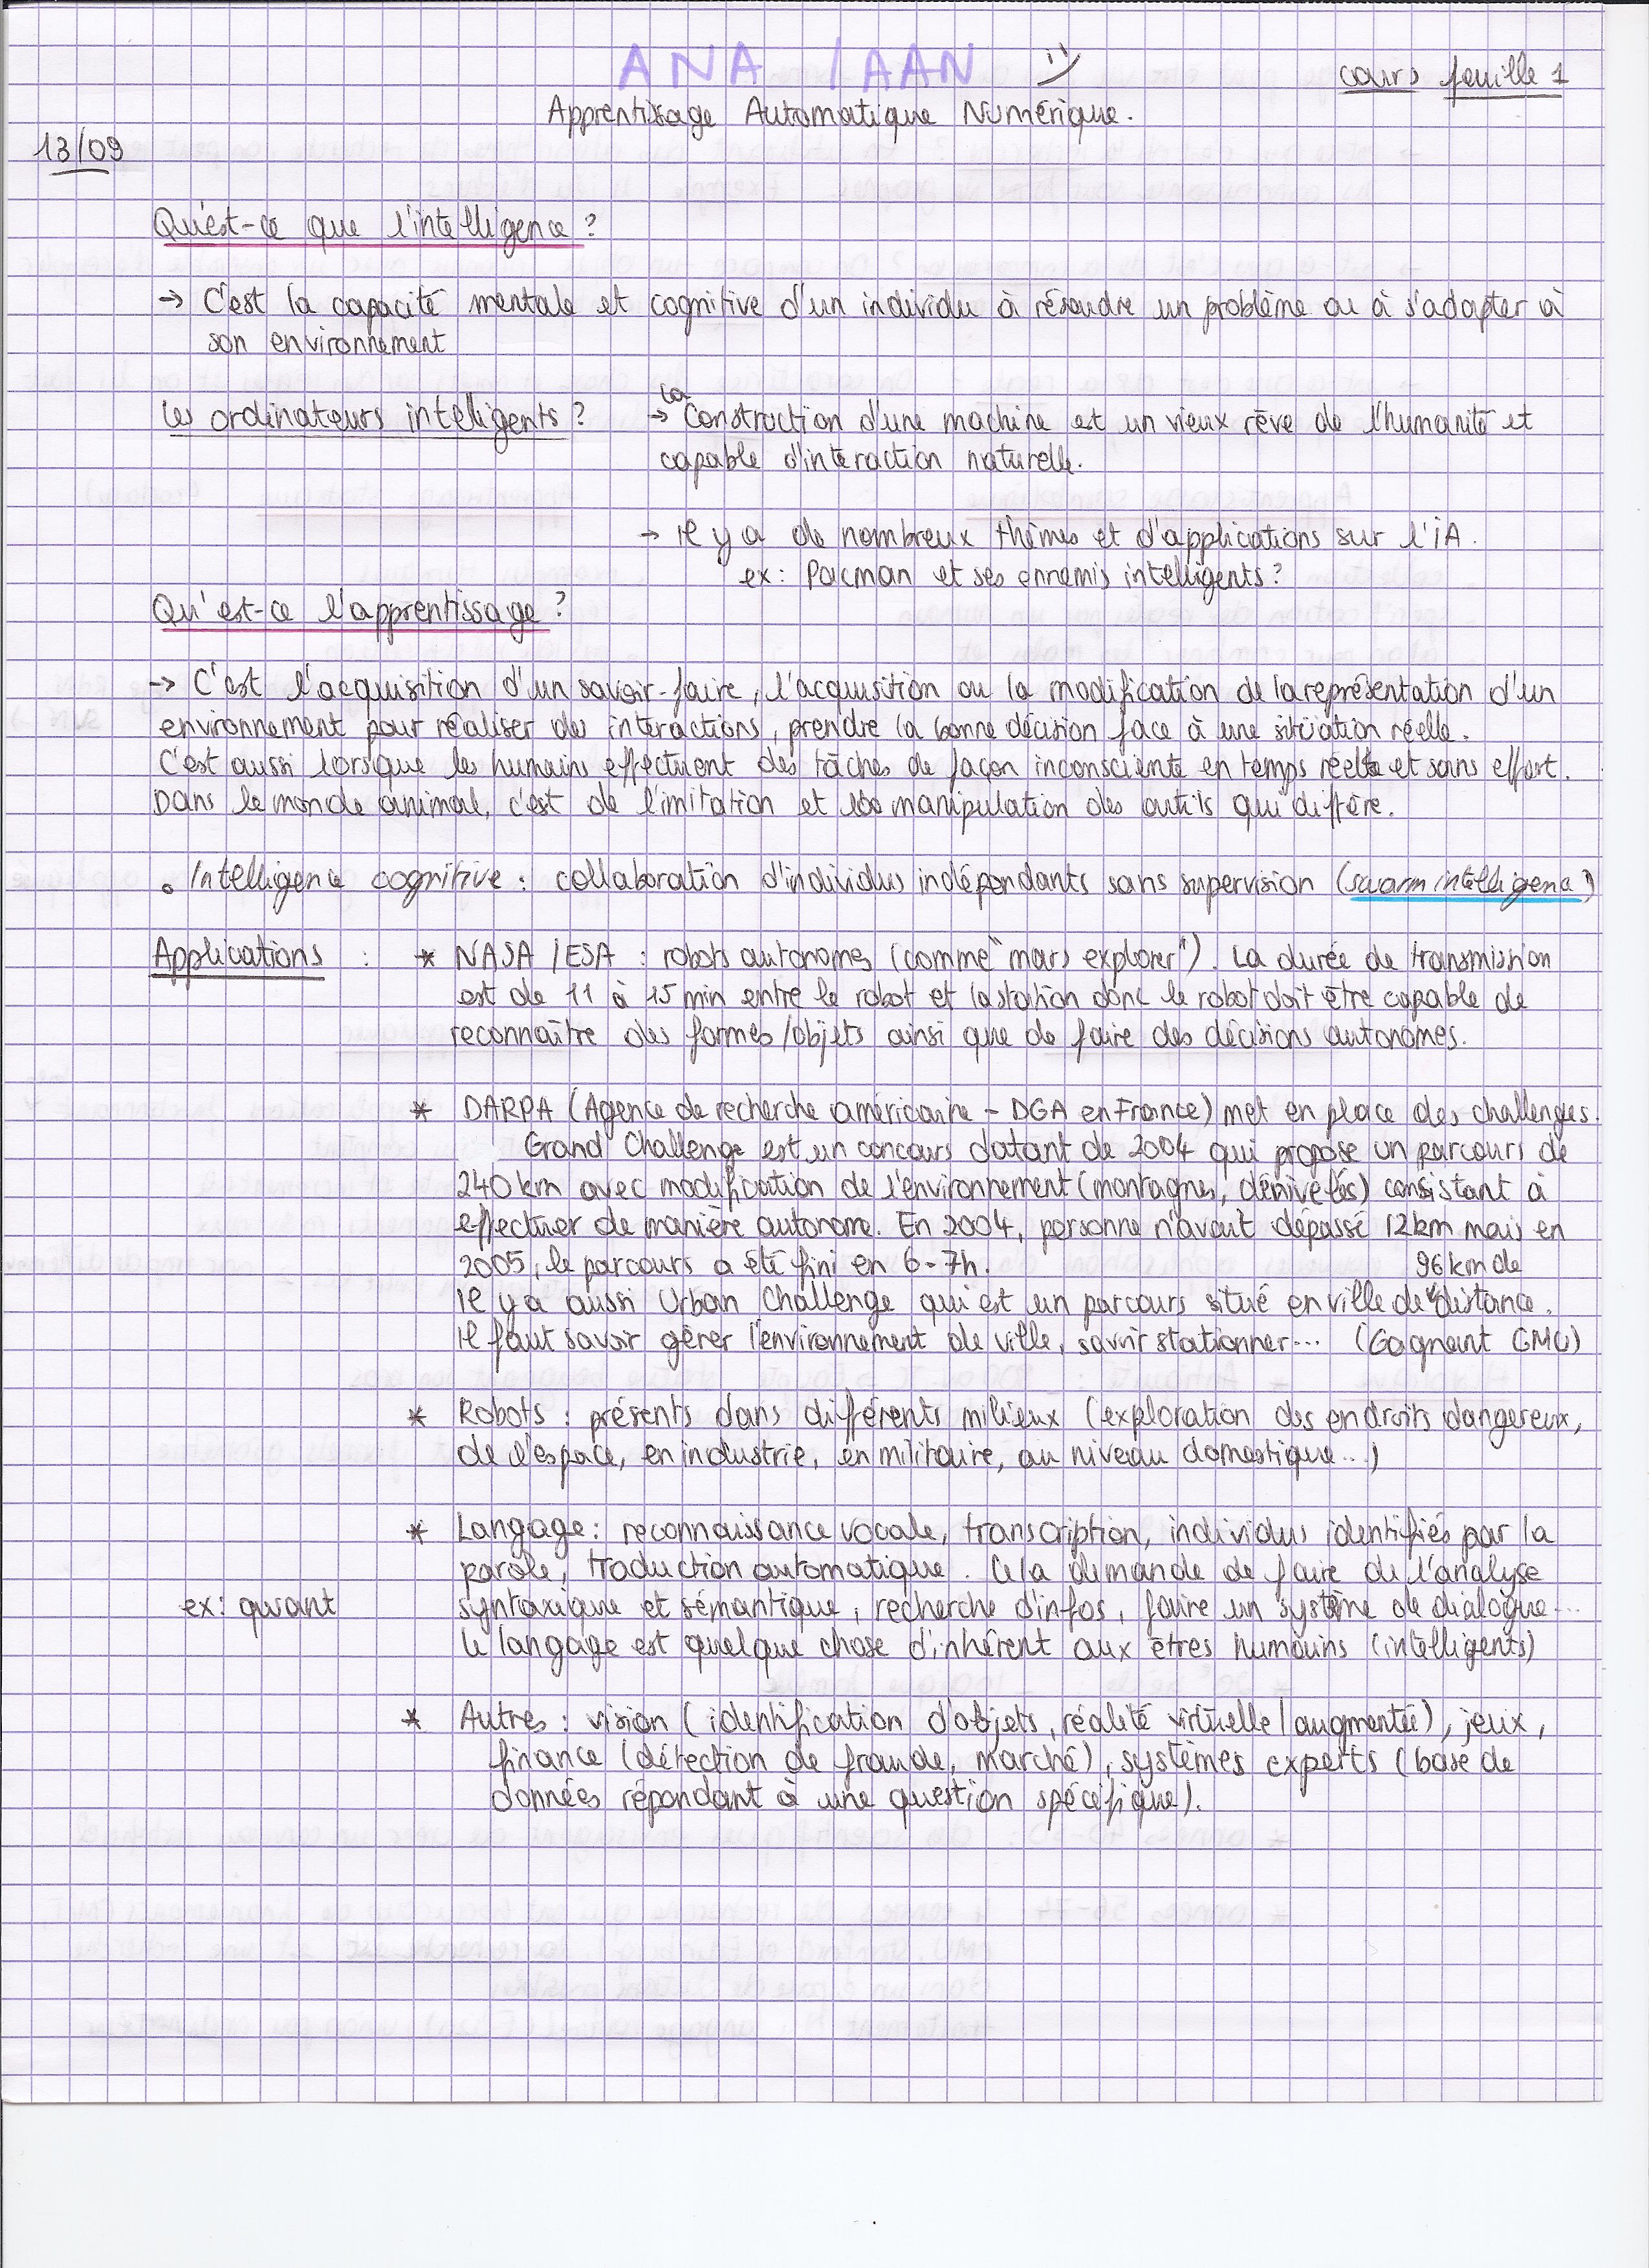 ANA / AAN
cours feuille 1
Apprentissage Automatique Numérique.
13/09
Qu'est-ce que l'intelligence ?
→ C'est la capacité mentale et cognitive d'un individu à résoudre un problème ou à s'adapter à
son environnement
Les ordinateurs intelligents ?
→ la Construction d'une machine est un vieux rêve de l'humanité et
capable d'interaction naturelle.
→ il y a de nombreux thèmes et d'applications sur l'IA.
ex : Pacman et ses ennemis intelligents ?
Qu'est-ce l'apprentissage ?
→ C'est l'acquisition d'un savoir-faire, l'acquisition ou la modification de la représentation d'un
environnement pour réaliser des interactions, prendre la bonne décision face à une situation réelle.
C'est aussi lorsque les humains effectuent des tâches de façon inconsciente en temps réel et sans effort.
Dans le monde animal, c'est de l'imitation et la manipulation des outils qui diffère.
• Intelligence cognitive : collaboration d'individus indépendants sans supervision (swarm intelligence)
Applications : * NASA / ESA : robots autonomes (comme "mars explorer"). La durée de transmission
est de 11 à 15 min entre le robot et la station donc le robot doit être capable de
reconnaître des formes/objets ainsi que de faire des décisions autonomes.
* DARPA (Agence de recherche américaine - DGA en France) met en place des challenges.
Grand Challenge est un concours datant de 2004 qui propose un parcours de
240 km avec modification de l'environnement (montagnes, dénivelés) consistant à
effectuer de manière autonome. En 2004, personne n'avait dépassé 12 km mais en
2005, le parcours a été fini en 6-7h.
Il y a aussi Urban Challenge qui est un parcours situé en ville de 96 km de distance.
Il faut savoir gérer l'environnement de ville, savoir stationner... (Gagnant CMU)
* Robots : présents dans différents milieux (exploration des endroits dangereux,
de l'espace, en industrie, en militaire, au niveau domestique...)
* Langage : reconnaissance vocale, transcription, individus identifiés par la
parole, traduction automatique. Cela demande de faire de l'analyse
ex : qwant
syntaxique et sémantique, recherche d'infos, faire un système de dialogue...
Le langage est quelque chose d'inhérent aux êtres humains (intelligents)
* Autres : vision (identification d'objets, réalité virtuelle/augmentée), jeux,
finance (détection de fraude, marché), systèmes experts (base de
données répondant à une question spécifique).